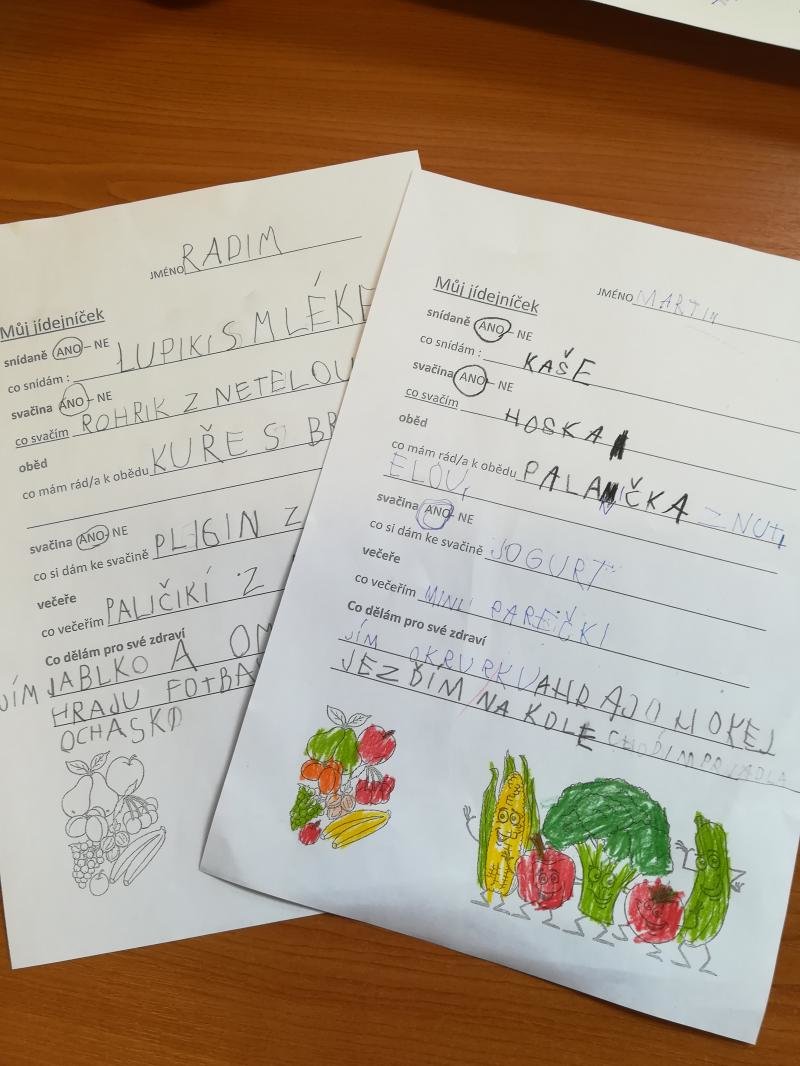 JMÉNO RADIM
Můj jídejníček
snídaně ANO – NE
co snídám : LUPIKI S MLÉKE
svačina ANO – NE
co svačím ROHRIK Z NETELOU
oběd
co mám rád/a k obědu KUŘE S BR
svačina ANO – NE
co si dám ke svačině PLIGIN Z
večeře
co večeřím PALIČIKÍ Z
Co dělám pro své zdraví
JÍM JABLKO A
HRAJU FOTBA
OCHASKO
JMÉNO MARTIN
Můj jídejníček
snídaně ANO – NE
co snídám : KAŠE
svačina ANO – NE
co svačím HOSKA
oběd
co mám rád/a k obědu PALANIČKA Z NUT
ELOU
svačina ANO – NE
co si dám ke svačině JOGURT
večeře
co večeřím MINI PAREČKI
Co dělám pro své zdraví
JÍM OKRURKU AHRAJO HOKEJ
JEZDÍM NA KOLE